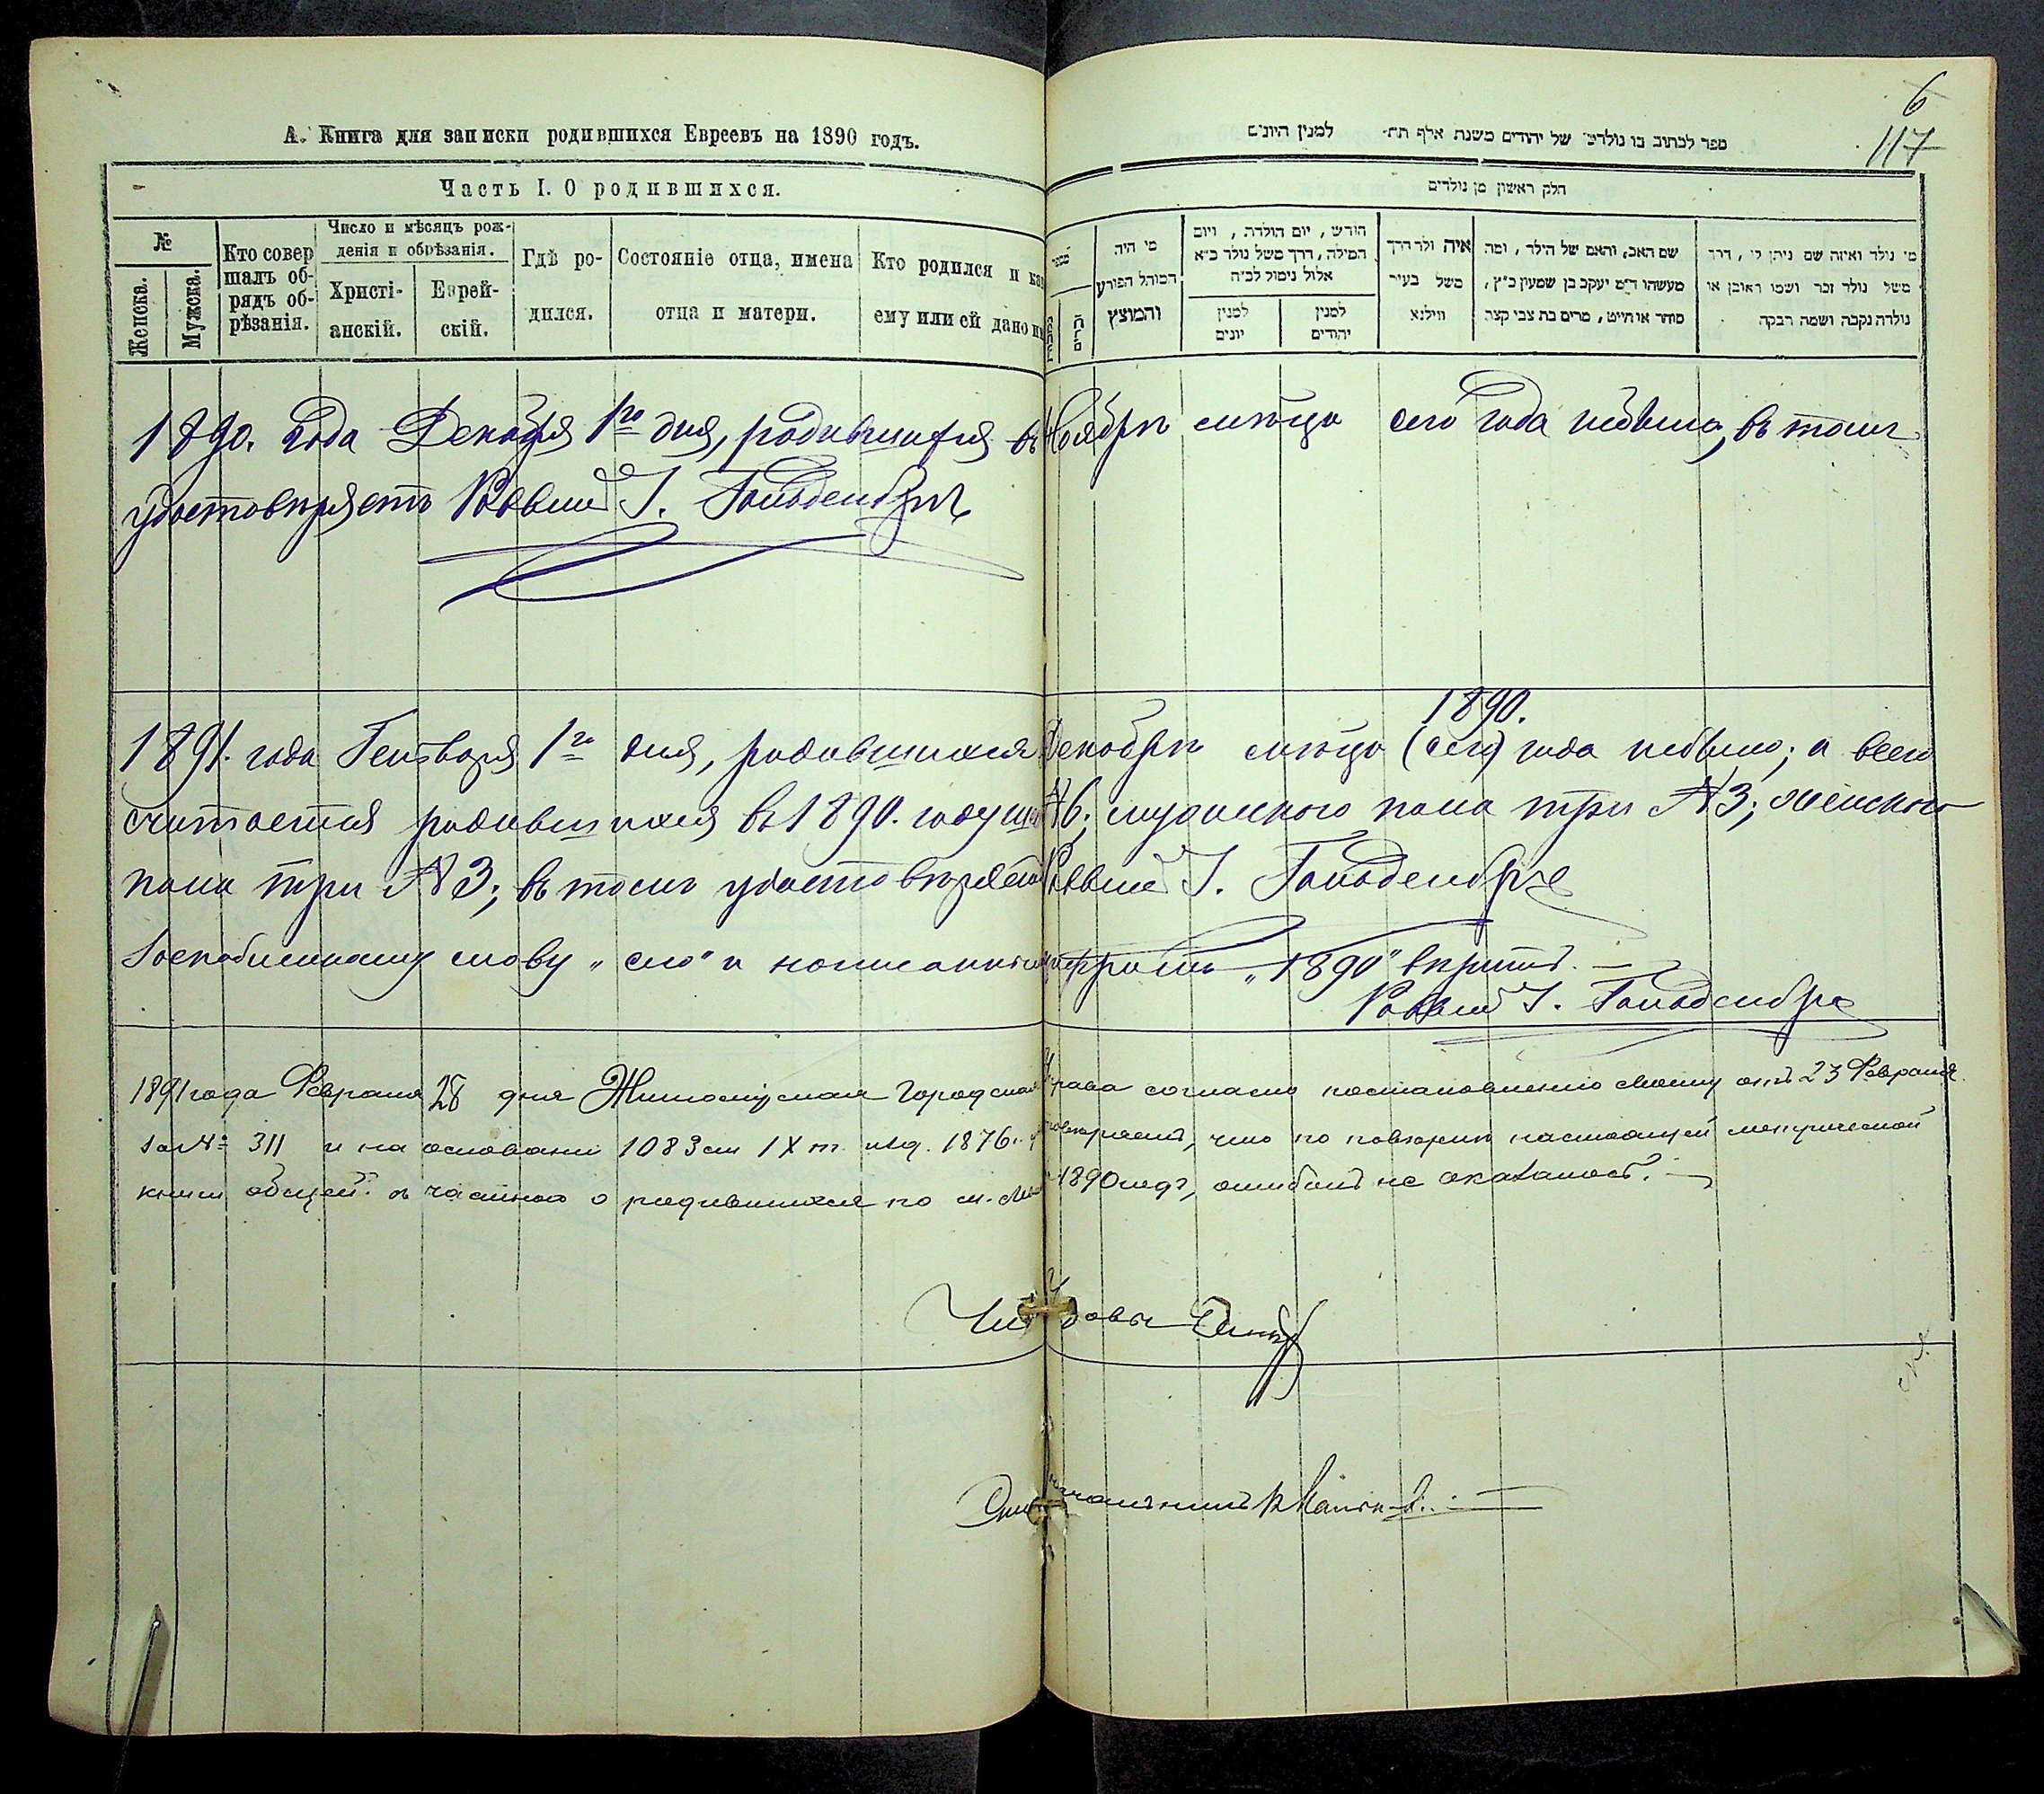 6
117
А. Книга для записки родившихся Евреевъ на 1890 годъ.
ספר לכתוב בו נולדים של יהודים משנת אלף תת למנין היונים
Часть I. О родившихся.
חלק ראשון מן נולדים
№
Женска.
Мужска.
Кто совершалъ обрядъ обрѣзанія.
Число и мѣсяцъ рожденія и обрѣзанія.
Христіанскій.
Еврейскій.
Гдѣ родился.
Состояніе отца, имена отца и матери.
Кто родился и как
ему или ей дано
מספר
זכרים
מי היה
המוהל הפורע
והמוצץ
חודש, יום הולדה, ויום
המילה, דרך משל נולד כ״א
אלול נימול לכ״ח
למנין
יונים
למנין
יהודים
איה ולד הדרך
משל בעיר
ווילנא
שם האב, והאם של הילד, ומה
מעשהו ד״מ יעקב בן שמעון כ״ץ,
סוחר או חייט, מרים בת צבי קצב
מי נולד ואיזה שם ניתן לו, דרך
משל נולד זכר ושמו ראובן או
נולדה נקבה ושמה רבקה
1890. Года Декабря 1го дня, родившихся въ Ноябрѣ мѣсяцѣ сего года небыло, въ томъ
удостовѣряетъ Раввинъ І. Гольденбергъ
1890.
1891. года Генваря 1го дня, родившихся Декабрѣ мѣсяцѣ (сего) года небыло; а всего
считается родившихся въ 1890. году №6; мужескаго пола три №3; женскаго
пола три №3; въ томъ удостовѣряетъ Раввинъ І. Гольденбергъ
По скобленному слову „сего" и написанному „1890" вѣрить. —
Раввинъ І. Гольденбергъ
1891 года Февраля 28 дня Житомірская Городская Управа согласно постановленію своему отъ 23 Февраля
за № 311 и на основаніи 1083 ст IX т. изд. 1876 г. удостовѣряетъ, что по повѣркѣ настоящей метрической
книги общей о родившихся по 1890 годъ, ошибокъ не оказалось. —